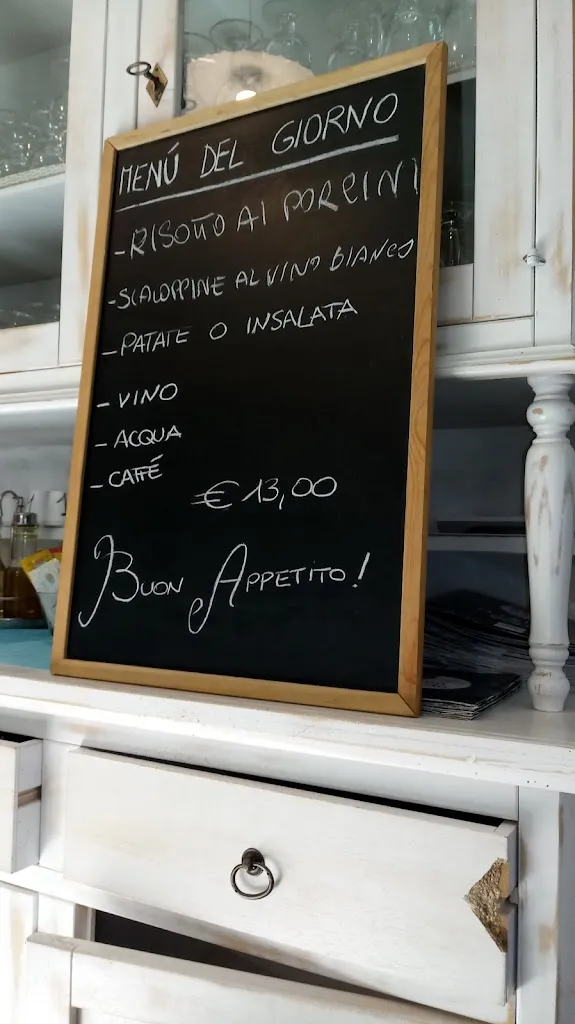 MENÚ DEL GIORNO
- RISOTTO AI PORCINI
- SCALOPPINE AL VINO BIANCO
- PATATE O INSALATA
- VINO
- ACQUA
- CAFFÉ
€ 13,00
BUON APPETITO!